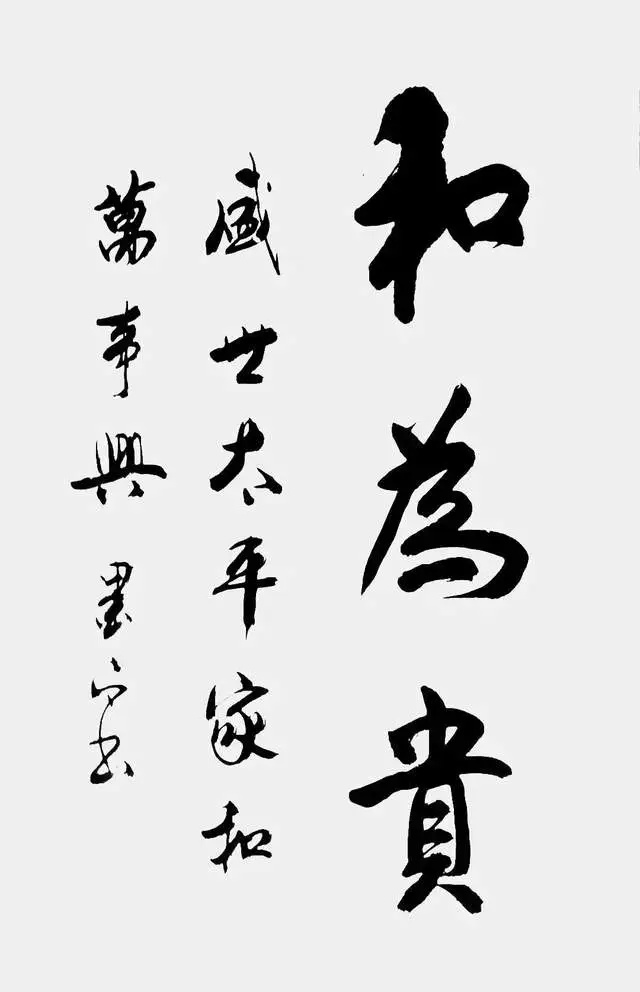 和為貴
盛世太平家和
萬事興 墨下書